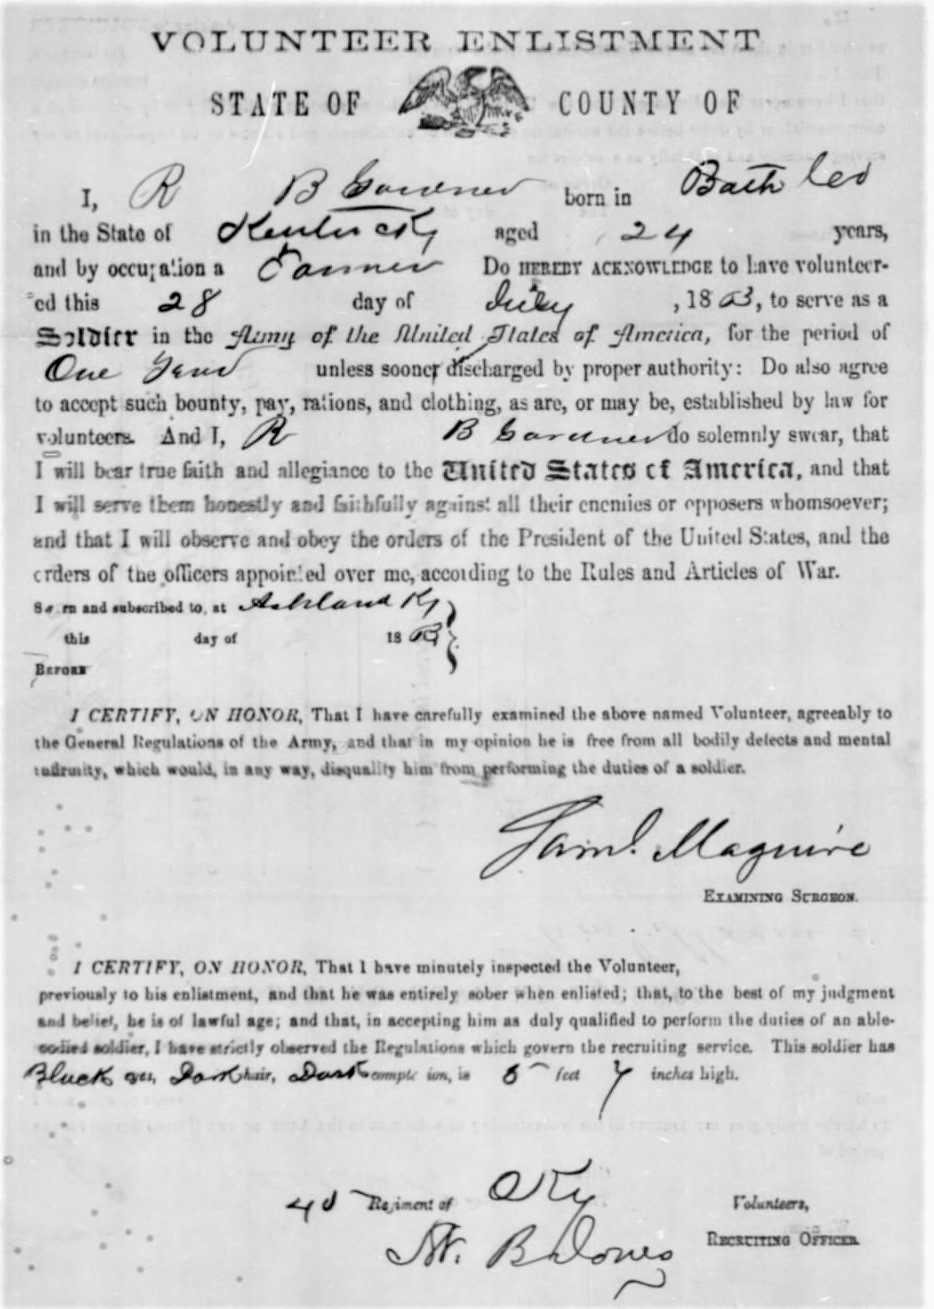 VOLUNTEER ENLISTMENT
STATE OF COUNTY OF
I, R B Gardner born in Bath Co
in the State of Kentucky aged 24 years,
and by occupation a Farmer Do HEREBY ACKNOWLEDGE to have volunteer-
ed this 28 day of July, 1863, to serve as a
Soldier in the Army of the United States of America, for the period of
One Year unless sooner discharged by proper authority: Do also agree
to accept such bounty, pay, rations, and clothing, as are, or may be, established by law for
volunteers. And I, R B Gardner do solemnly swear, that
I will bear true faith and allegiance to the United States of America, and that
I will serve them honestly and faithfully against all their enemies or opposers whomsoever;
and that I will observe and obey the orders of the President of the United States, and the
orders of the officers appointed over me, according to the Rules and Articles of War.
Sworn and subscribed to, at Ashland Ky
this day of 1863
BEFORE
I CERTIFY, ON HONOR, That I have carefully examined the above named Volunteer, agreeably to
the General Regulations of the Army, and that in my opinion he is free from all bodily defects and mental
infirmity, which would, in any way, disqualify him from performing the duties of a soldier.
Saml. Maguire
EXAMINING SURGEON.
I CERTIFY, ON HONOR, That I have minutely inspected the Volunteer,
previously to his enlistment, and that he was entirely sober when enlisted; that, to the best of my judgment
and belief, he is of lawful age; and that, in accepting him as duly qualified to perform the duties of an able-
bodied soldier, I have strictly observed the Regulations which govern the recruiting service. This soldier has
Black eyes, Dark hair, Dark complexion, is 5 feet 7 inches high.
40 Regiment of Ky Volunteers,
B Jones RECRUITING OFFICER.